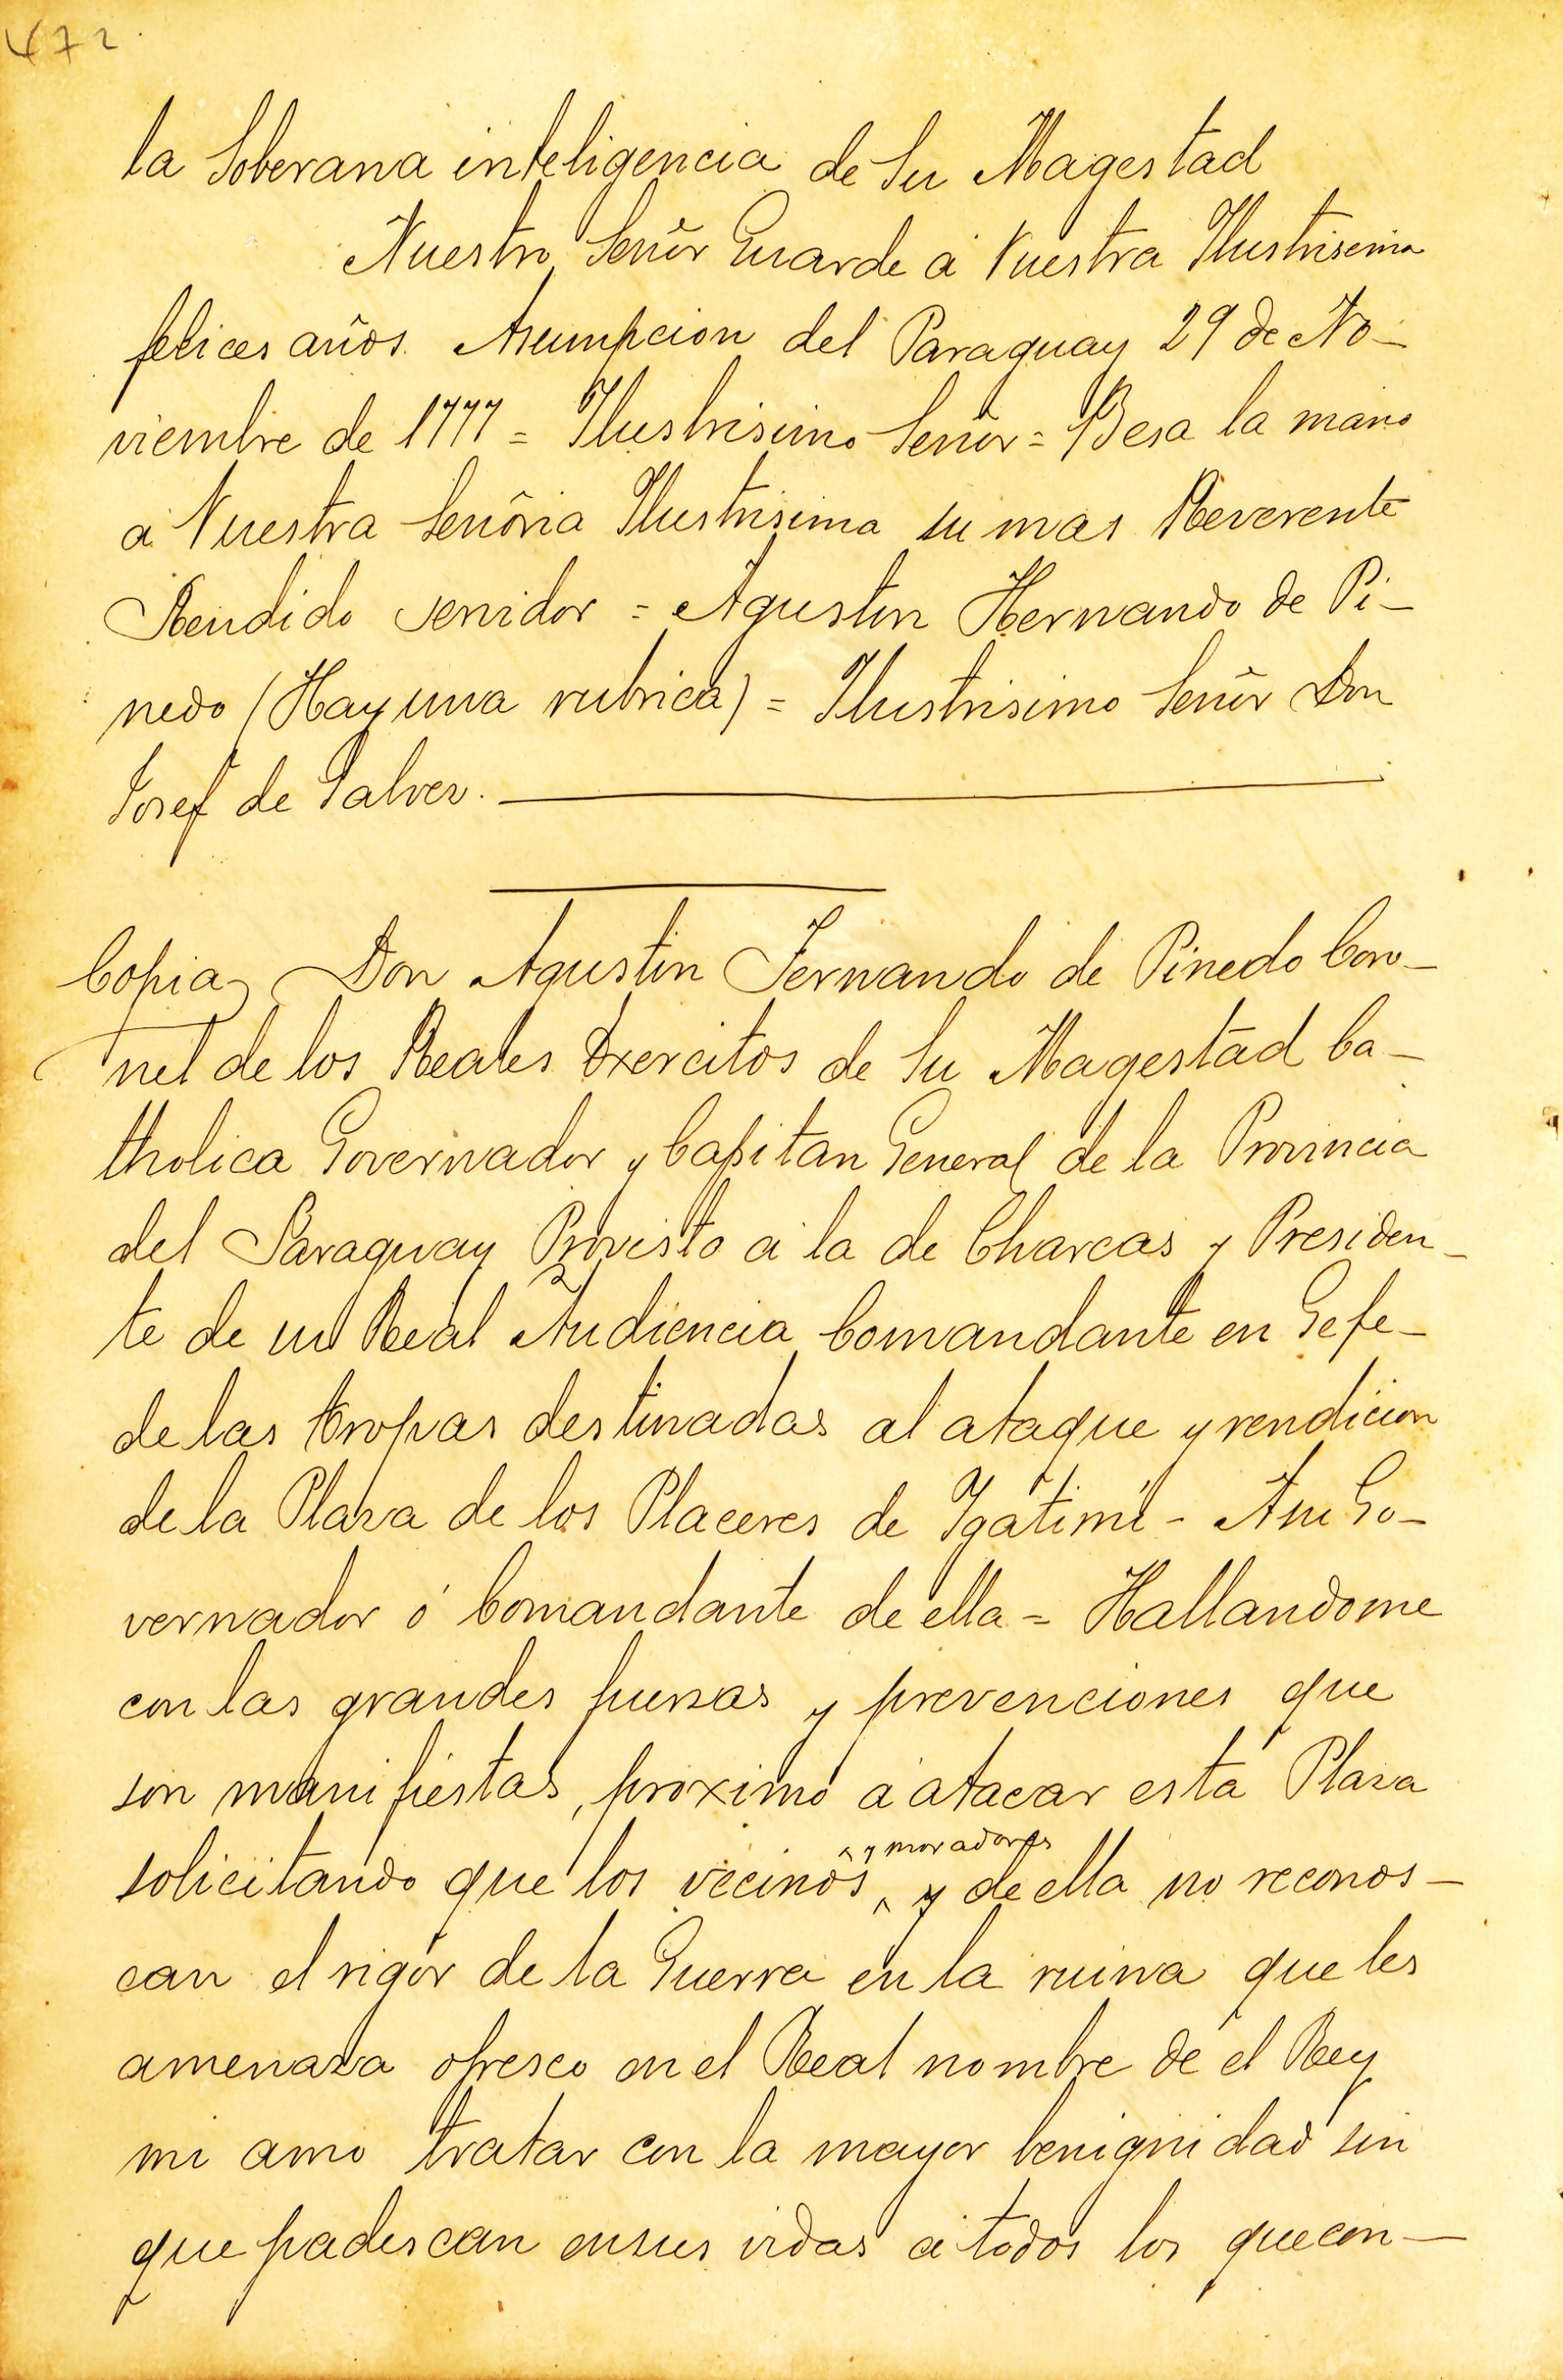 472
la Soberana inteligencia de Su Magestad
Nuestro Señor Guarde a Vuestra Ilustrisima
felices años. Asumpcion del Paraguay 29 de No-
viembre de 1777 = Ilustrisimo Señor = Besa la mano
a Vuestra Señoria Ilustrisima su mas Reverente
Rendido servidor = Agustin Hernando de Pi-
nedo (Hay una rubrica) = Ilustrisimo Señor Don
Josef de Galvez.
Copia Don Agustin Fernando de Pinedo Coro-
nel de los Reales Exercitos de Su Magestad Ca-
tholica Governador y Capitan General de la Provincia
del Paraguay Provisto a la de Charcas y Presiden-
te de su Real Audiencia Comandante en Gefe-
de las tropas destinadas al ataque y rendicion
de la Plaza de los Placeres de Igatimi - A su Go-
vernador ó Comandante de ella = Hallandome
con las grandes fuerzas y prevenciones que
son manifiestas, proximo a atacar esta Plaza
solicitando que los vecinos y moradores de ella no reconos-
can el rigor de la Guerra en la ruina que les
amenaza ofresco en el Real nombre de el Rey
mi amo tratar con la mayor benignidad sin
que padescan en sus vidas a todos los que con-